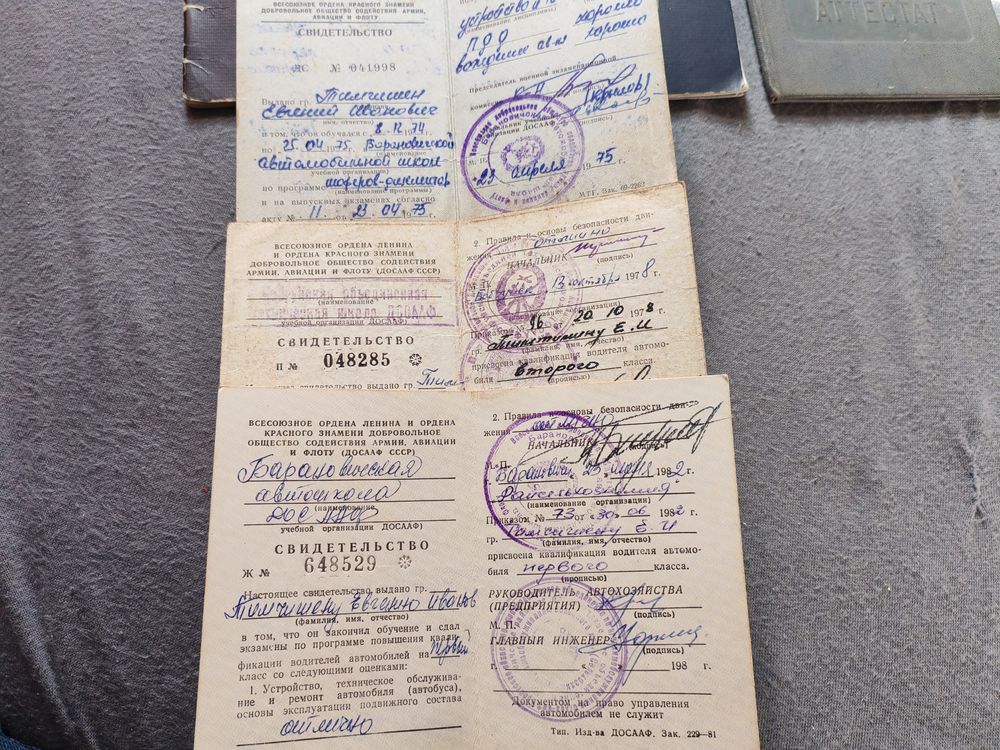 АТТЕСТАТ
ВСЕСОЮЗНОЕ ОРДЕНА КРАСНОГО ЗНАМЕНИ
ДОБРОВОЛЬНОЕ ОБЩЕСТВО СОДЕЙСТВИЯ АРМИИ,
АВИАЦИИ И ФЛОТУ
СВИДЕТЕЛЬСТВО
№ 041998
Выдано гр. Тимчишен
Евгений Иванович
имя, отчество)
в том, что он обучался с 8.12.74
по 25.04 1975 г. Барановичской
автомобильной школ
учебной организации)
шоферов-
по программе
(наименование программы)
и на выпускных экзаменах согласно
акту № 11 от 23.04 1975 г.
устройство и
(наименование дисциплины)
хорошо
ПДД
вождение хорошо
Председатель военной экзаменационной
комиссии
(подпись)
Начальник
организации ДОСААФ
(подпись)
М. П.
23 апреля 1975
МТГ. Зак. 69-2263
ВСЕСОЮЗНОЕ ОРДЕНА ЛЕНИНА
И ОРДЕНА КРАСНОГО ЗНАМЕНИ
ДОБРОВОЛЬНОЕ ОБЩЕСТВО СОДЕЙСТВИЯ
АРМИИ, АВИАЦИИ И ФЛОТУ (ДОСААФ СССР)
объединенная
(наименование)
школа ДОСААФ
учебной организации ДОСААФ)
СВИДЕТЕЛЬСТВО
П № 048285
свидетельство выдано гр. Тим
2. Правила и основы безопасности дви-
жения отлично
НАЧАЛЬНИК
(подпись)
13 октября 1978 г.
организации)
Приказом № 96 от 20.10 1978
гр. Тимчишину Е.И
(фамилия, имя, отчество)
присвоена квалификация водителя автомо-
биля второго класса.
(прописью)
ВСЕСОЮЗНОЕ ОРДЕНА ЛЕНИНА И ОРДЕНА
КРАСНОГО ЗНАМЕНИ ДОБРОВОЛЬНОЕ
ОБЩЕСТВО СОДЕЙСТВИЯ АРМИИ, АВИАЦИИ
И ФЛОТУ (ДОСААФ СССР)
Барановичская
автошкола
(наименование
ДОСААФ
учебной организации ДОСААФ)
СВИДЕТЕЛЬСТВО
Ж № 648529
Настоящее свидетельство выдано гр.
Тимчишену Евгению Иванов
(фамилия, имя, отчество)
в том, что он закончил обучение и сдал
экзамены по программе повышения квали-
фикации водителей автомобилей на первый
класс со следующими оценками:
1. Устройство, техническое обслужива-
ние и ремонт автомобиля (автобуса),
основы эксплуатации подвижного состава
отлично
2. Правила и основы безопасности дви-
жения отлично
НАЧАЛЬНИК
(подпись)
М. П.
Барановичи, 25 апреля 1982 г.
Райсельхозхимия
(наименование организации)
Приказом № 73 от 30.06 1982
гр. Тимчишену Е.И
(фамилия, имя, отчество)
присвоена квалификация водителя автомо-
биля первого класса.
(прописью)
РУКОВОДИТЕЛЬ АВТОХОЗЯЙСТВА
(ПРЕДПРИЯТИЯ)
(подпись)
М. П.
ГЛАВНЫЙ ИНЖЕНЕР
(подпись)
г. 198 г.
Документом на право управления
автомобилем не служит
Тип. Изд-ва ДОСААФ. Зак. 229—81